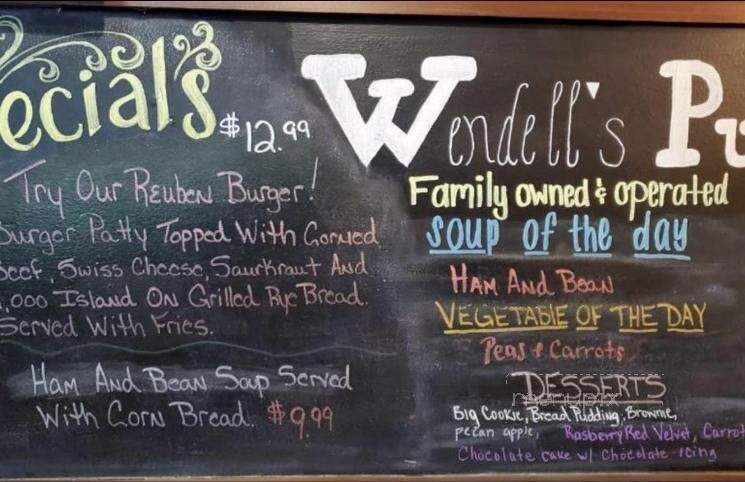 ecial's
$12.99
Try Our Reuben Burger!
Burger Patty Topped With Corned
Beef, Swiss Cheese, Saurkraut And
1,000 Island On Grilled Rye Bread.
Served With Fries.
Ham And Bean Soup Served
With Corn Bread. $9.99
Wendell's Pu
Family owned & operated
Soup of the day
Ham And Bean
VEGETABLE OF THE DAY
Peas & Carrots
DESSERTS
Big Cookie, Bread Pudding, Brownie,
pecan apple, Rasberry Red Velvet, Carrot
Chocolate cake w/ Chocolate Icing